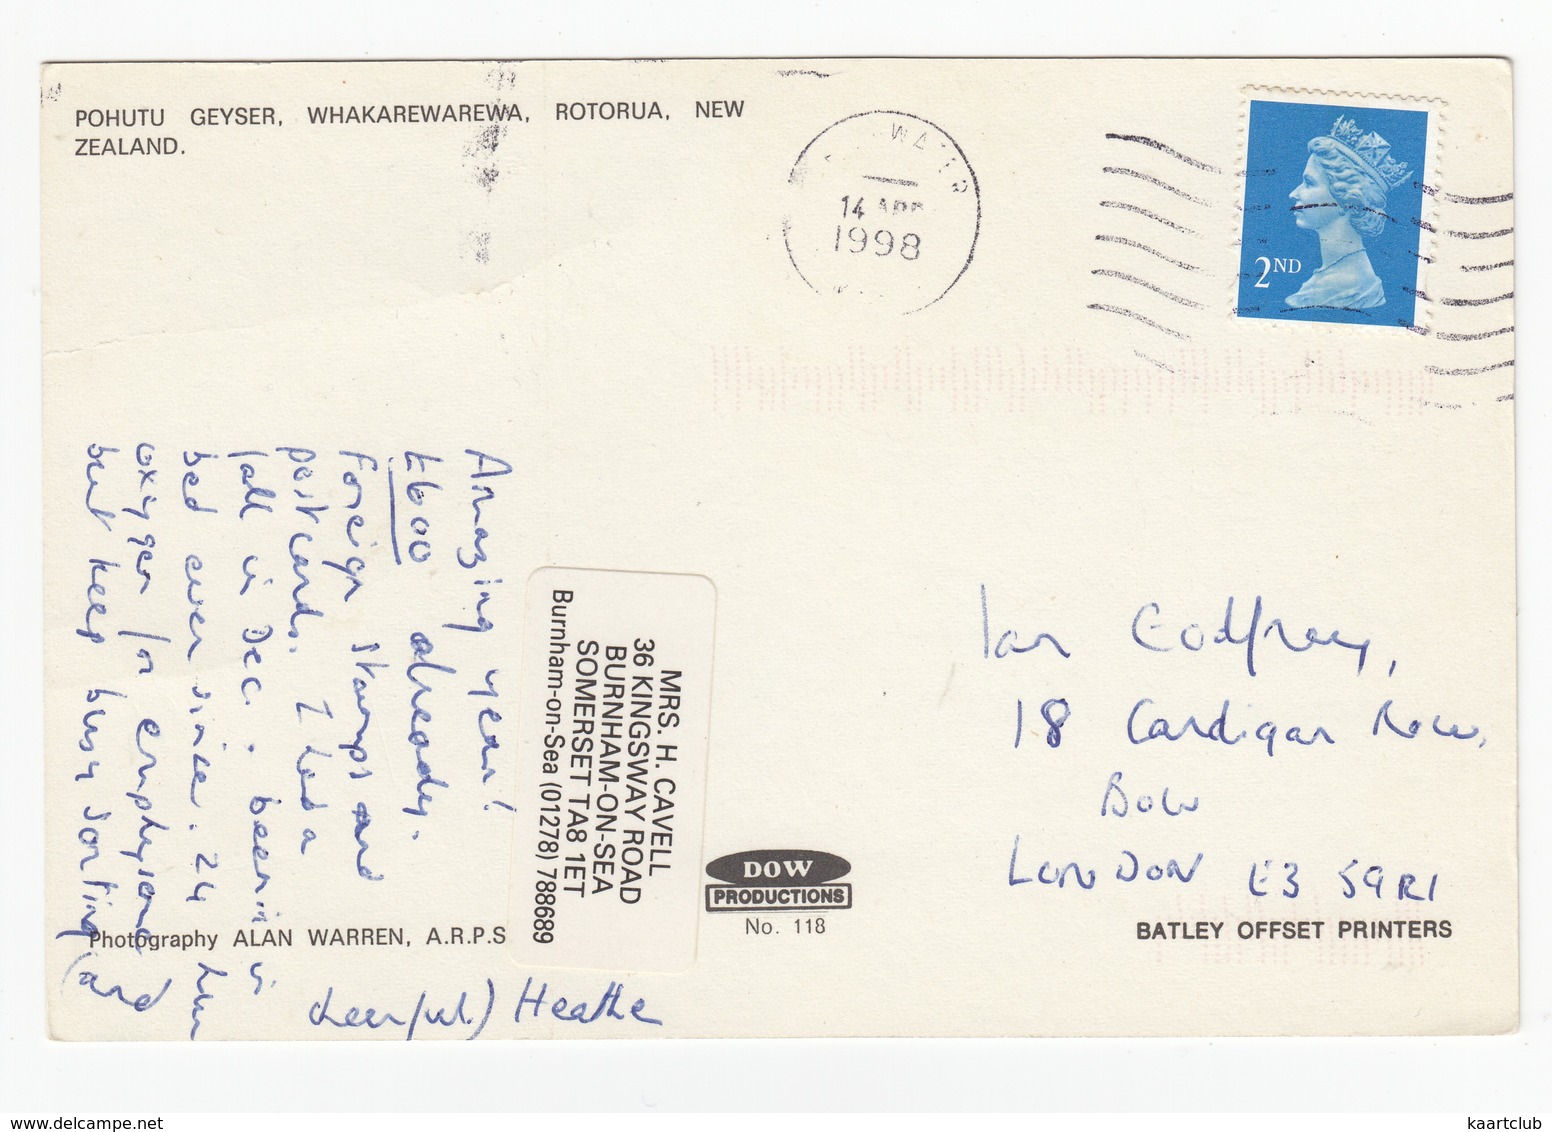 POHUTU GEYSER, WHAKAREWAREWA, ROTORUA, NEW
ZEALAND.
WATER
14 APR
1998
2ND
Amazing year!
£600 already.
Foreign stamps and
postcards. I had a
fall in Dec. been in
bed ever since. 24 hr
oxygen for emphysema
but keep busy sorting
(and
cheerful.) Heather
MRS. H. CAVELL
36 KINGSWAY ROAD
BURNHAM-ON-SEA
SOMERSET TA8 1ET
Burnham-on-Sea (01278) 788689
Ian Godfrey,
18 Cardigan Row,
Bow
LONDON E3 5QR
DOW
PRODUCTIONS
No. 118
Photography ALAN WARREN, A.R.P.S
BATLEY OFFSET PRINTERS
www.delcampe.net
kaartclub